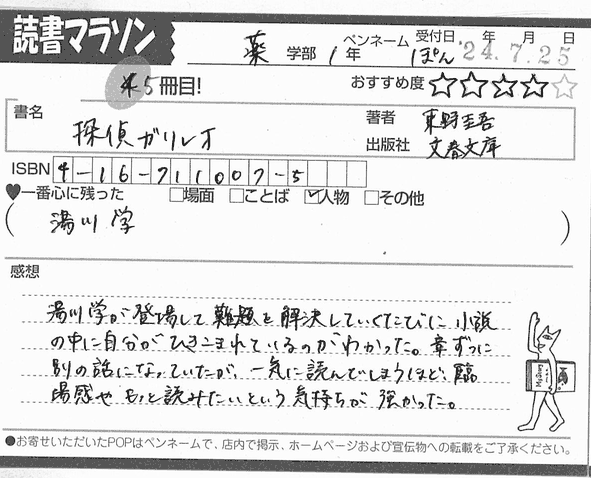 読書マラソン
薬 学部 1 年 ペンネーム ぽん 受付日 '24.年7.月25日
5 冊目! おすすめ度 ☆☆☆☆☆
書名 探偵ガリレオ
著者 東野圭吾
出版社 文春文庫
ISBN 4-16-711007-5
♥一番心に残った □場面 □ことば ☑人物 □その他
( 湯川 学 )
感想
湯川学が登場して難題を解決していくたびに小説
の中に自分がひきこまれているのがわかった。章ずつに
別の話になっていたが、一気に読んでしまうほど、臨
場感やもっと読みたいという気持ちが強かった。
●お寄せいただいたPOPはペンネームで、店内で掲示、ホームページおよび宣伝物への転載をご了承ください。